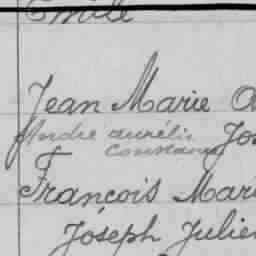 Emile
Jean Marie
André aurélie Jos
Constance
François Mari
Joseph Julien